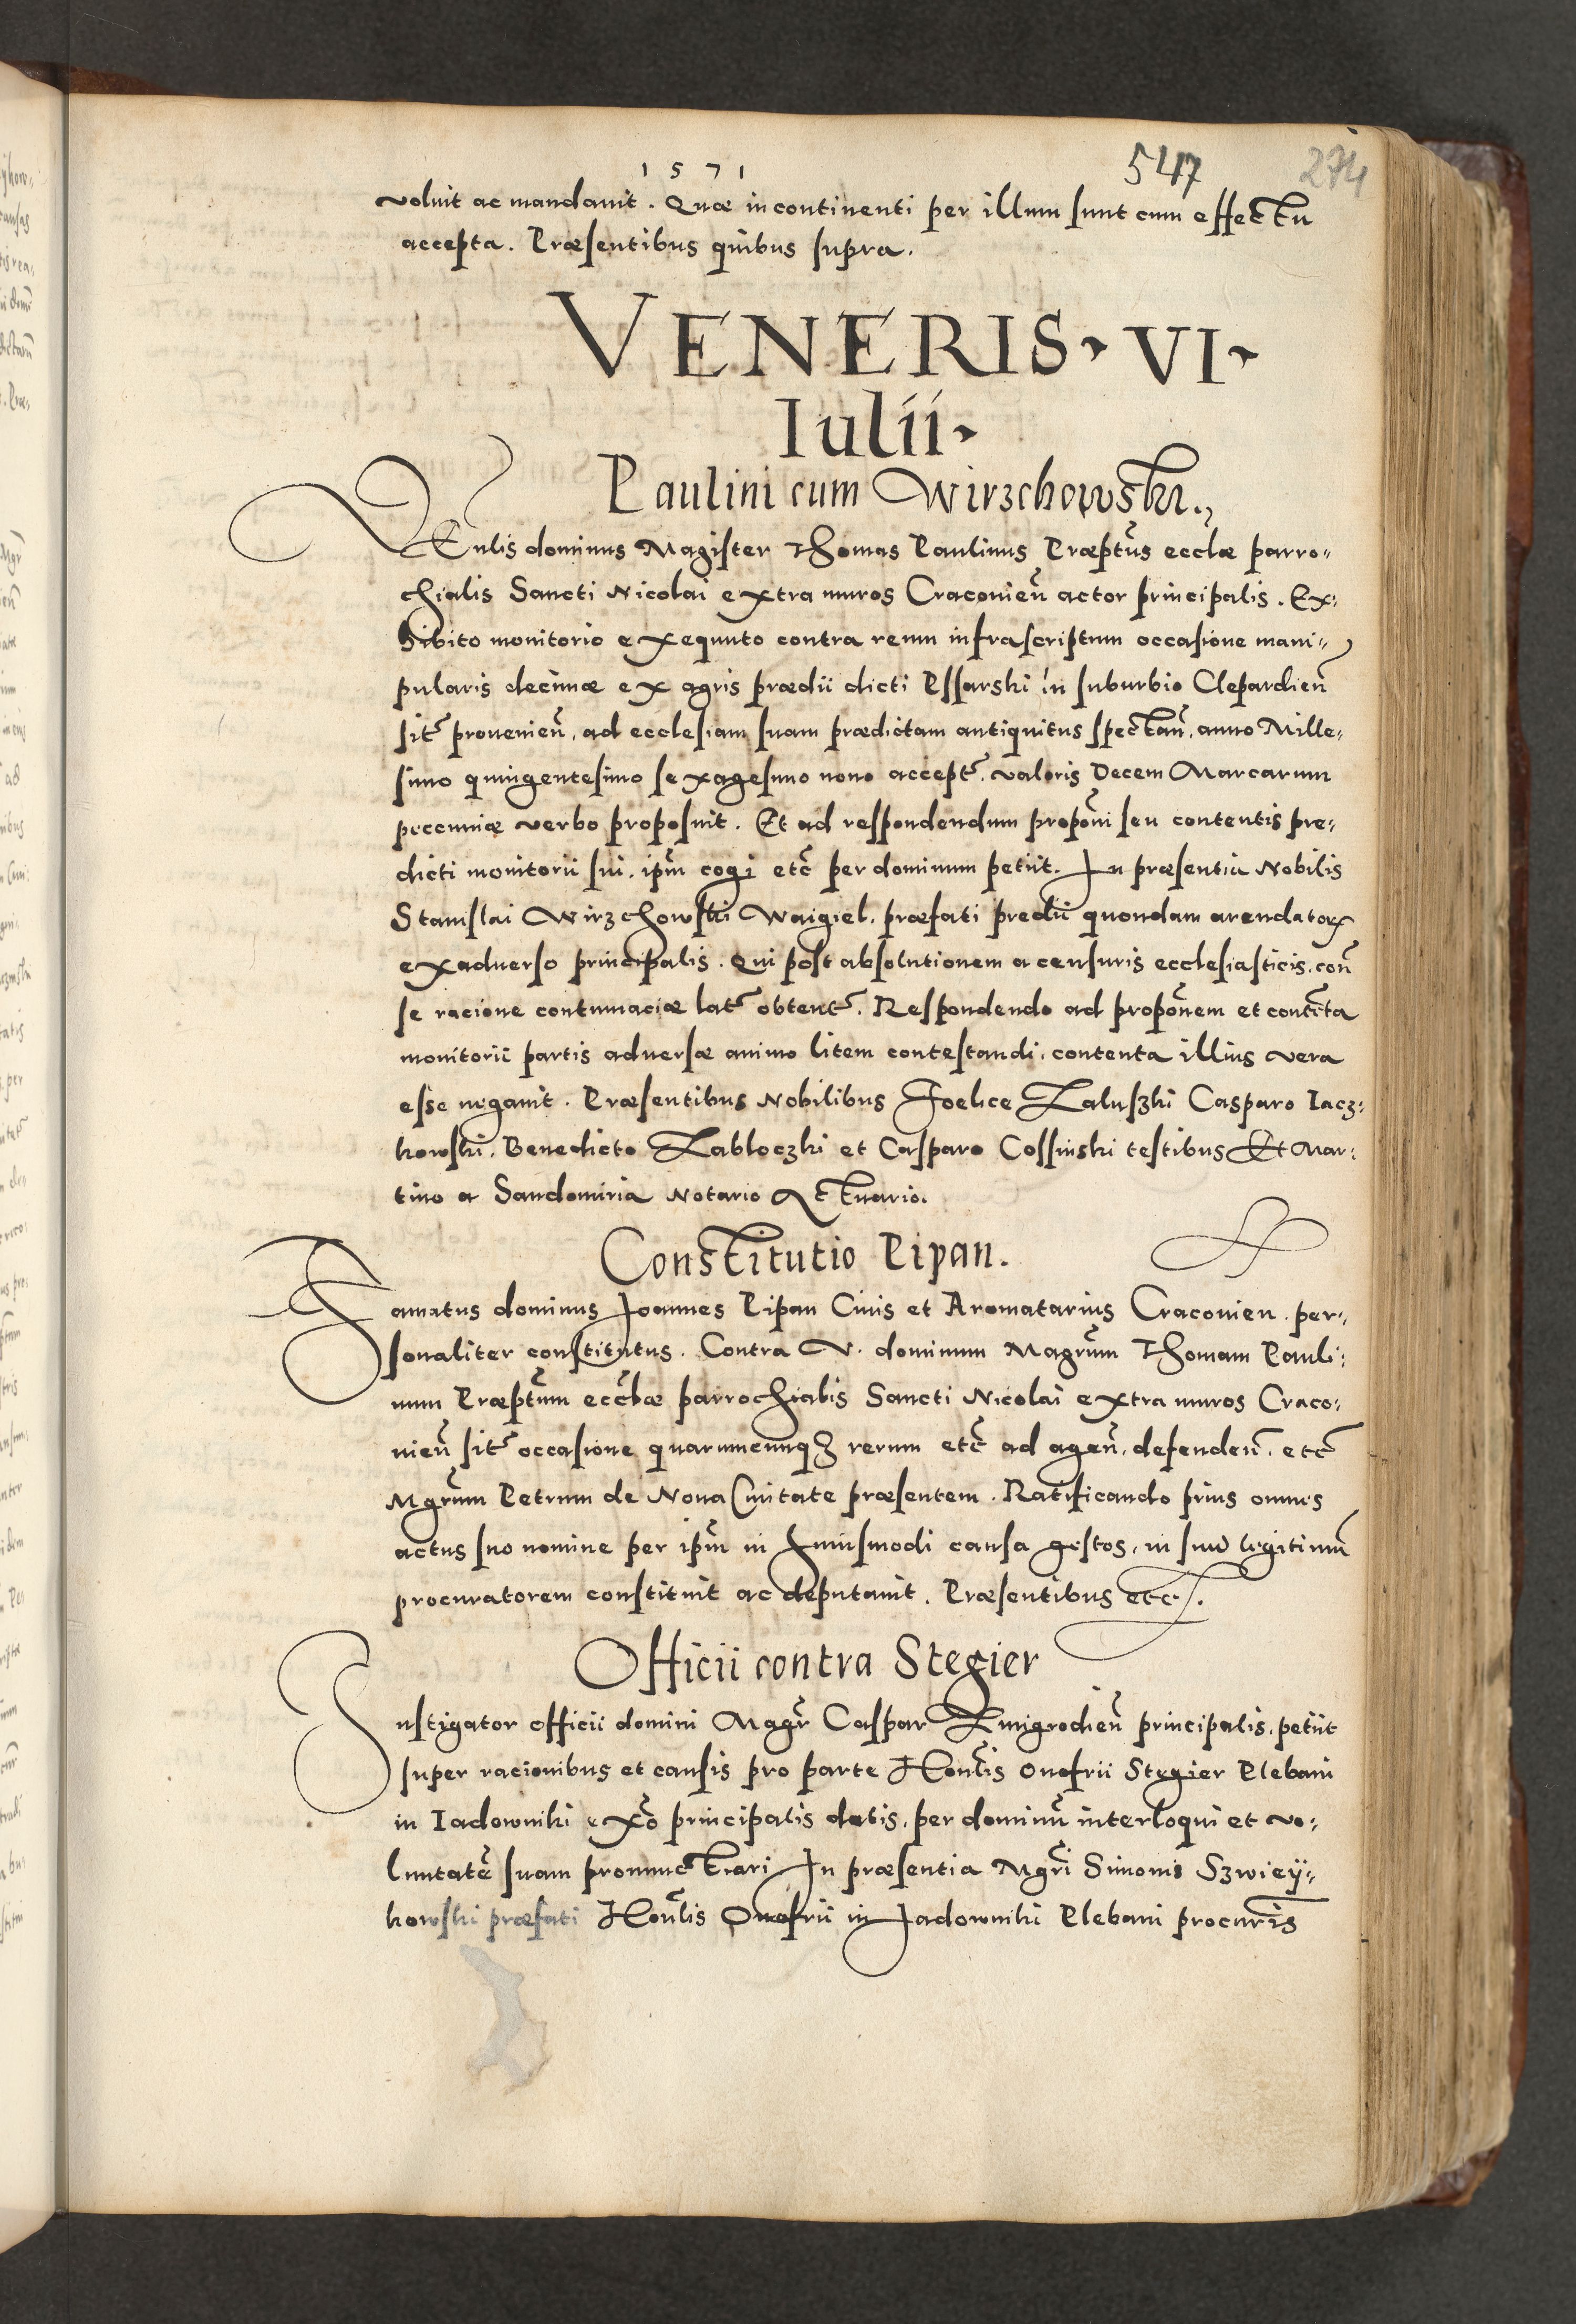 1571
547
274
voluit ac mandauit. Quæ incontinenti per illum sunt cum effectu
accepta. Præsentibus quibus supra.
VENERIS · VI ·
Iulii ·
Paulini cum Wirzchowski.,
VEnlis dominus Magister Thomas Paulinus Præptus ecclæ parro-
chialis Sancti Nicolai extra muros Craconien actor principalis. Ex-
hibito monitorio exequuto contra reum infrascriptum occasione mani-
pularis decimæ ex agris prædii dicti Pssarski in suburbio Clepardien
sit prouenien, ad ecclesiam suam prædictam antiquitus spectan, anno Mille-
simo quingentesimo sexagesimo nono accept. valoris Decem Marcarum
pecuniæ verbo proposuit. Et ad respondendum proponi seu contentis pre-
dicti monitorii sui, ipm cogi etc per dominum petiit. In præsentia Nobilis
Stanislai Wirzchowski Waigiel, præfati predii quondam arendator
exaduerso principalis. Qui post absolutionem a censuris ecclesiasticis, con
se racione contumaciæ lat obtent. Respondendo ad proponem et contēta
monitorii partis aduersæ animo litem contestandi, contenta illius vera
esse negauit. Præsentibus Nobilibus Foelice Zaluszki Casparo Iacz-
kowski, Benedicto Zabloczki et Casparo Cossinski testibus Et Mar-
tino a Sandomiria Notario Actuario.
Constitutio Pipan.
Famatus dominus Joannes Pipan Ciuis et Aromatarius Craconien. per-
sonaliter constitutus. Contra V. dominum Magrum Thomam Pauli-
num Præptum ecclæ parrochialis Sancti Nicolai extra muros Craco-
nien sit occasione quarumcunqz rerum etc ad agen, defenden, etc
Mgrum Petrum de Noua Ciuitate præsentem. Ratificando prius omnes
actus suo nomine per ipm in huiusmodi causa gestos, in suū legitimū
procuratorem constituit ac deputauit. Præsentibus etc.
Officii contra Stegier
Instigator officii domini Magr Caspar Zmigrodien principalis, petiit
super racionibus et causis pro parte Honlis Onofrii Stegier Plebani
in Iadowniki exo principalis datis, per dominū interloqui et vo-
luntatē suam pronunctiari In præsentia Mgri Simonis Szwiey-
kowski præfati Honlis Onofrii in Jadowniki Plebani procuris